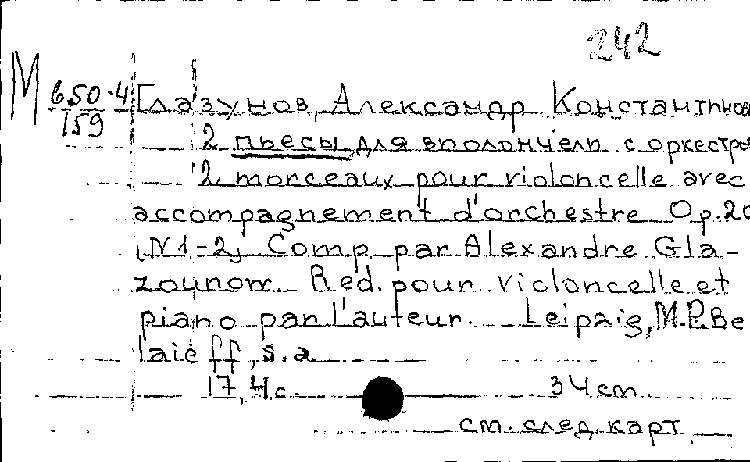 242
М 650-4/159 Глазунов, Александр Константинов
2 пьесы для виолончели с оркестры
2 morceaux pour violoncelle avec
accompagnement d'orchestre Op.20
[N1-2] Comp. par Alexandre Gla-
zounow. Red. pour violoncelle et
piano par l'auteur. Leipzig, M.P.Be
laieff, s.a.
17, 4 с. 34 cm.
см. след. карт.